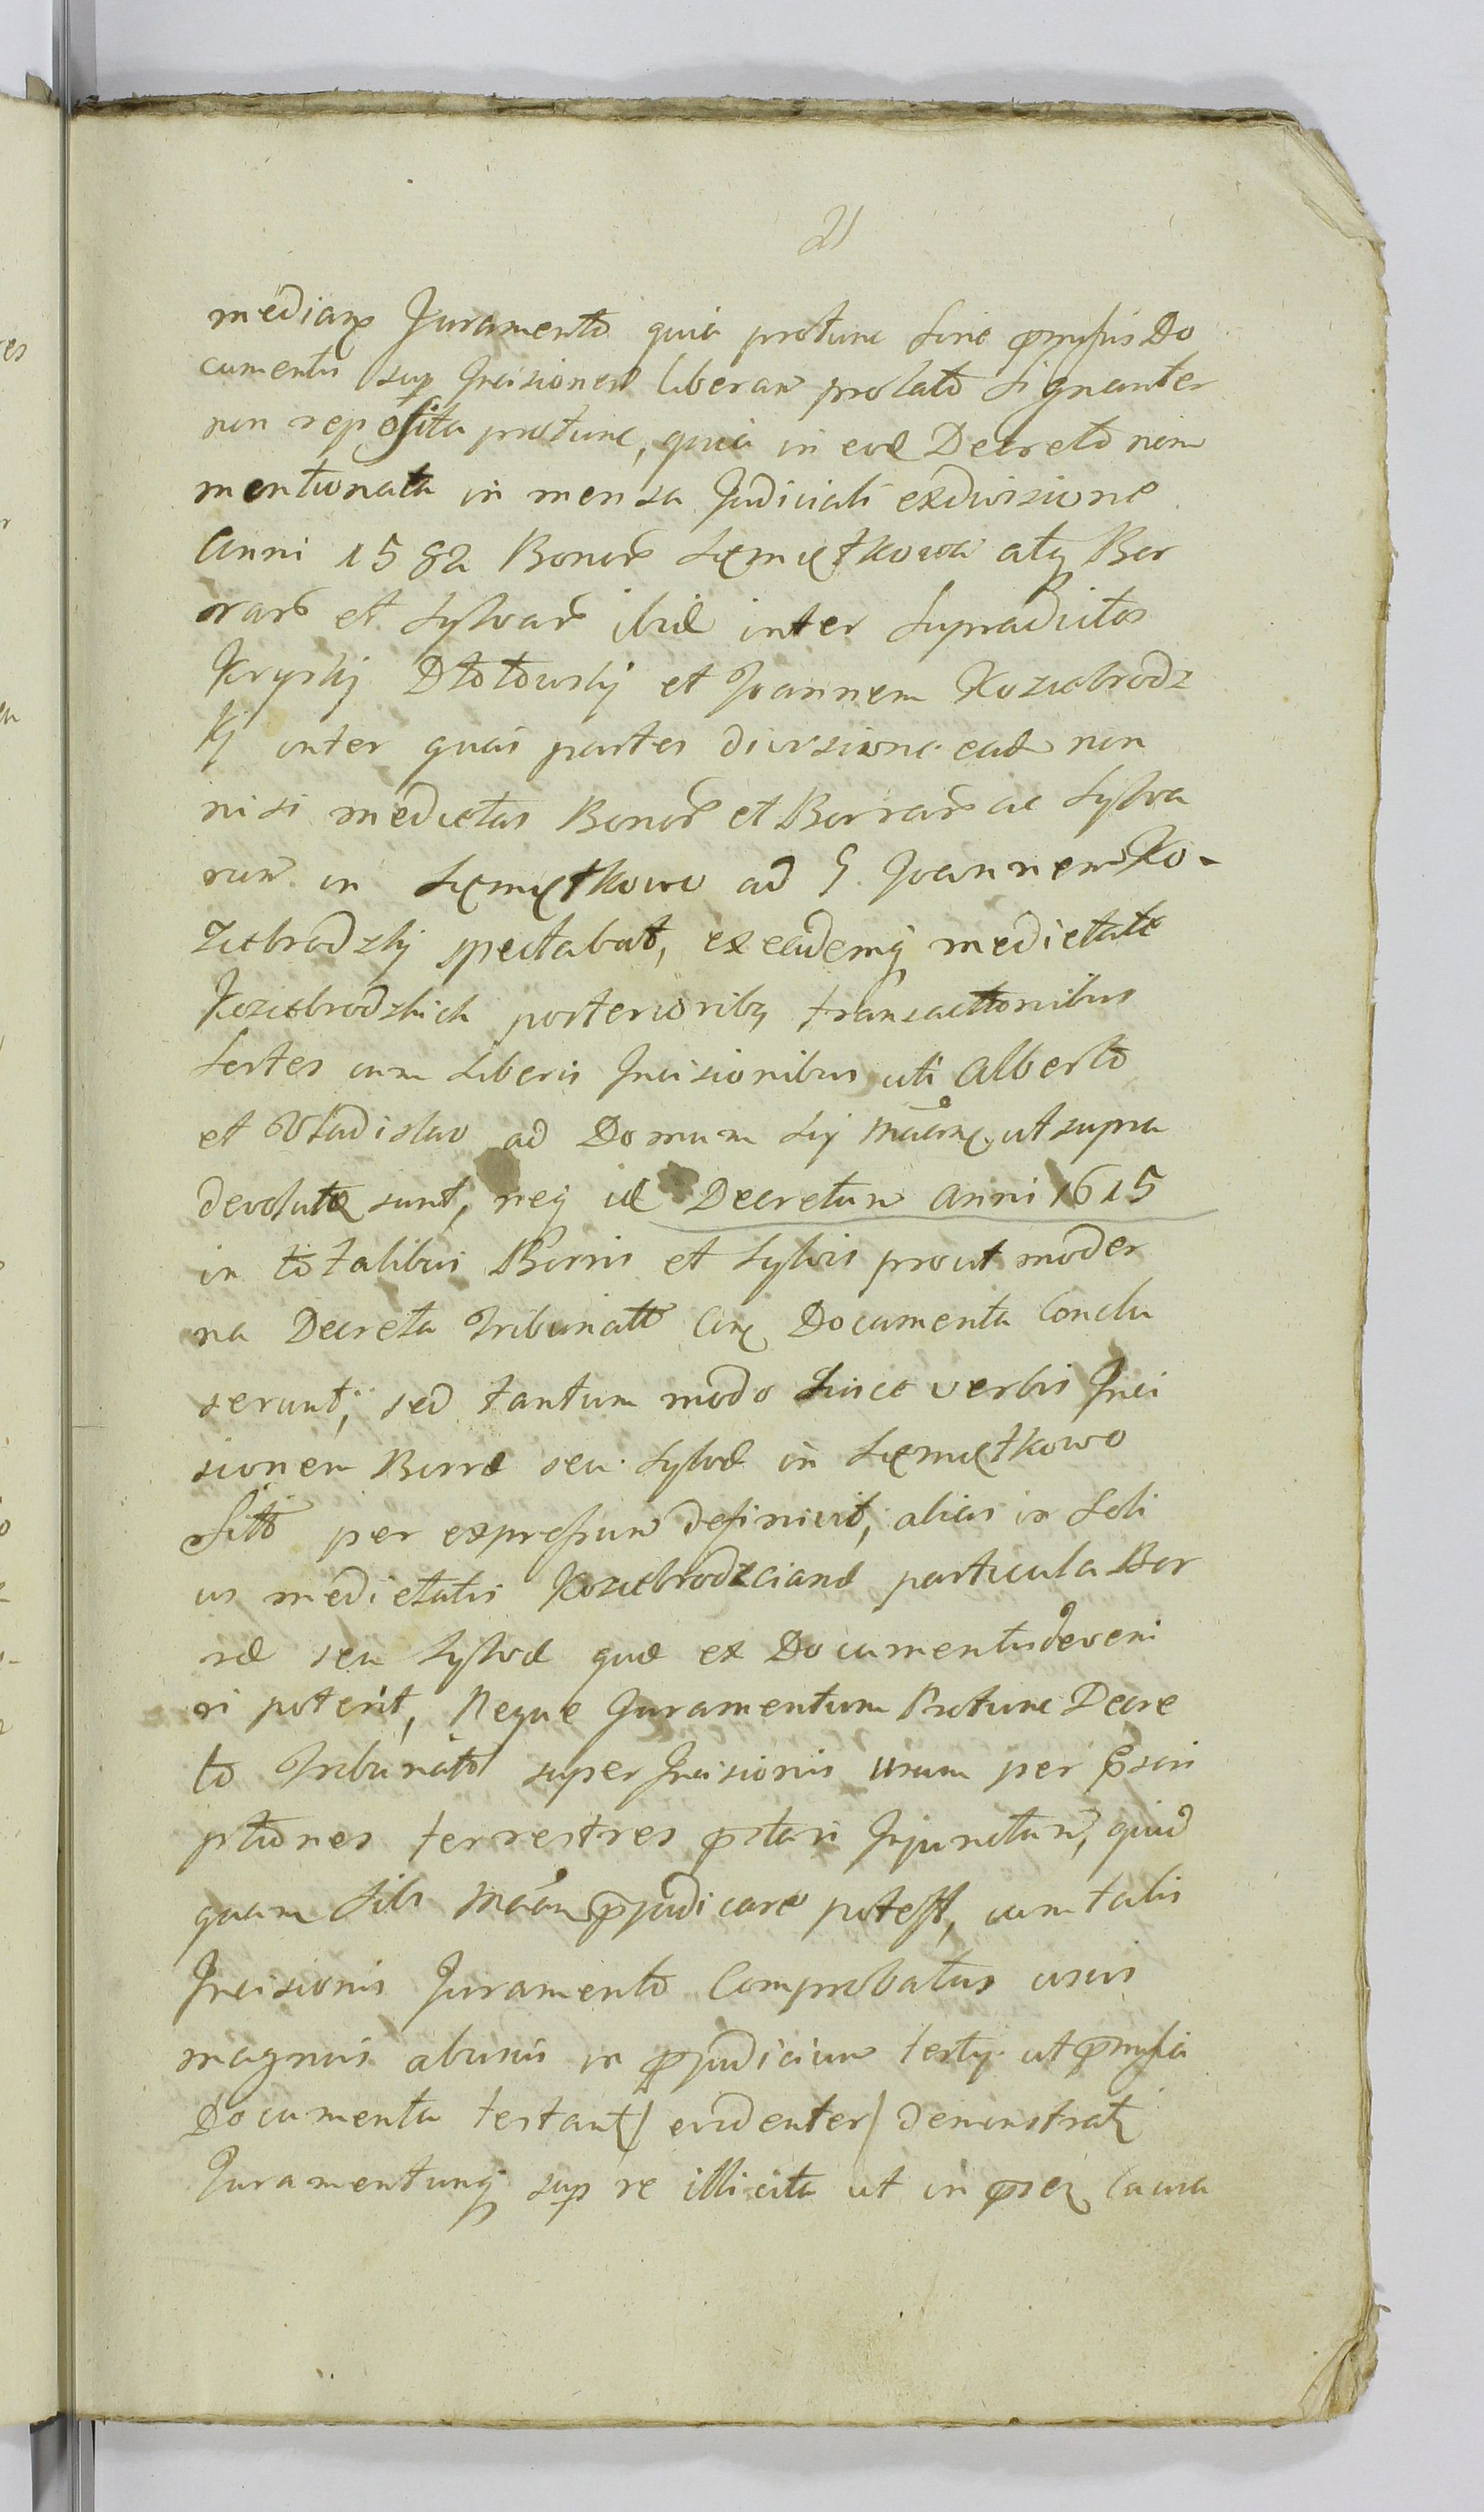 21
mediañ Juramento quia protunc sine p̃missis Do
cumentis sup Incisionem liberam prolato signanter
non reposita protunc, quia in eod Decreto non
mentionata in mensa Judiciali ex divisione
Anni 1582 Bonor Sięmiętkowa atq Bor
rar et Sylvar ibid inter Supradictos
Kryski Dłotowski et Joannem Koziebrodz
kj inter quas partes divisione ead non
nisi medietas Bonor et Borrar ac Sylva
rum in Sięmiętkowo ad G Joannem Ko-
ziebrodzkj spectabat, ex eademq medietate
Koziebrodzkich posterioribq transactionibus
Sortes cum Liberis Incisionibus uti Alberto
et Vładislao ad Domum Sij ut supra
devolutæ sunt, neq id Decretum anni 1615
in totalibus Borris et Sylvis prout moder
na Decreta Tribunalt Documenta Conclu
serunt, sed tantum modo verbis Inci
sionem Borræ seu Sylvæ in Sięmiętkowo
per expressum definivit, alias in Soli
us medietatis Koziebrodzcianæ particula Bor
ræ seu Sylvæ quæ ex Documentis deveni
ri poterit, Neque Juramentum Protunc Decre
to Tribunalt super Incisionis usum per p̃scri
ptiones terrestres p̃stari Injunctum, quid
quam sibi p̃judicare potest, cum talis
Incisionis Juramento Comprobatus usus
magnus abusus in p̃judicium tertij ut p̃missa
Documenta testant/ evidenter/ demonstrat
Juramentumq sup re illicita ut in p̃sen causa